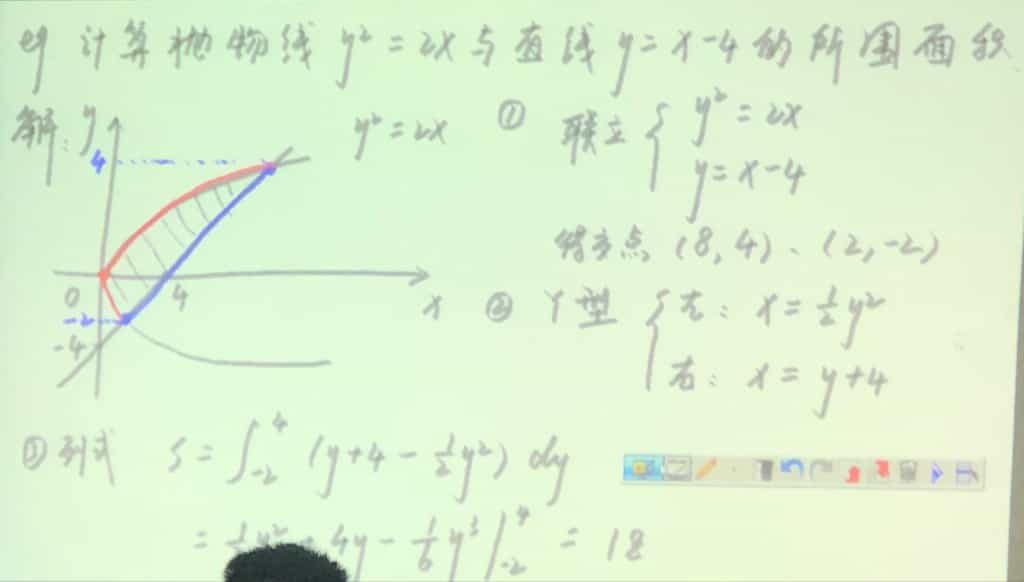 eg 计算抛物线 y² = 2x 与直线 y = x-4 的所围面积
解: y
4
y² = 2x
0
4
x
-2
-4
① 联立 { y² = 2x
y = x-4
得交点 (8,4)、(2,-2)
② Y型 { 左: x = ½y²
右: x = y+4
③ 列式 S = ∫₋₂⁴ (y+4 - ½y²) dy
= ½y² + 4y - 1/6 y³ |₋₂⁴ = 18